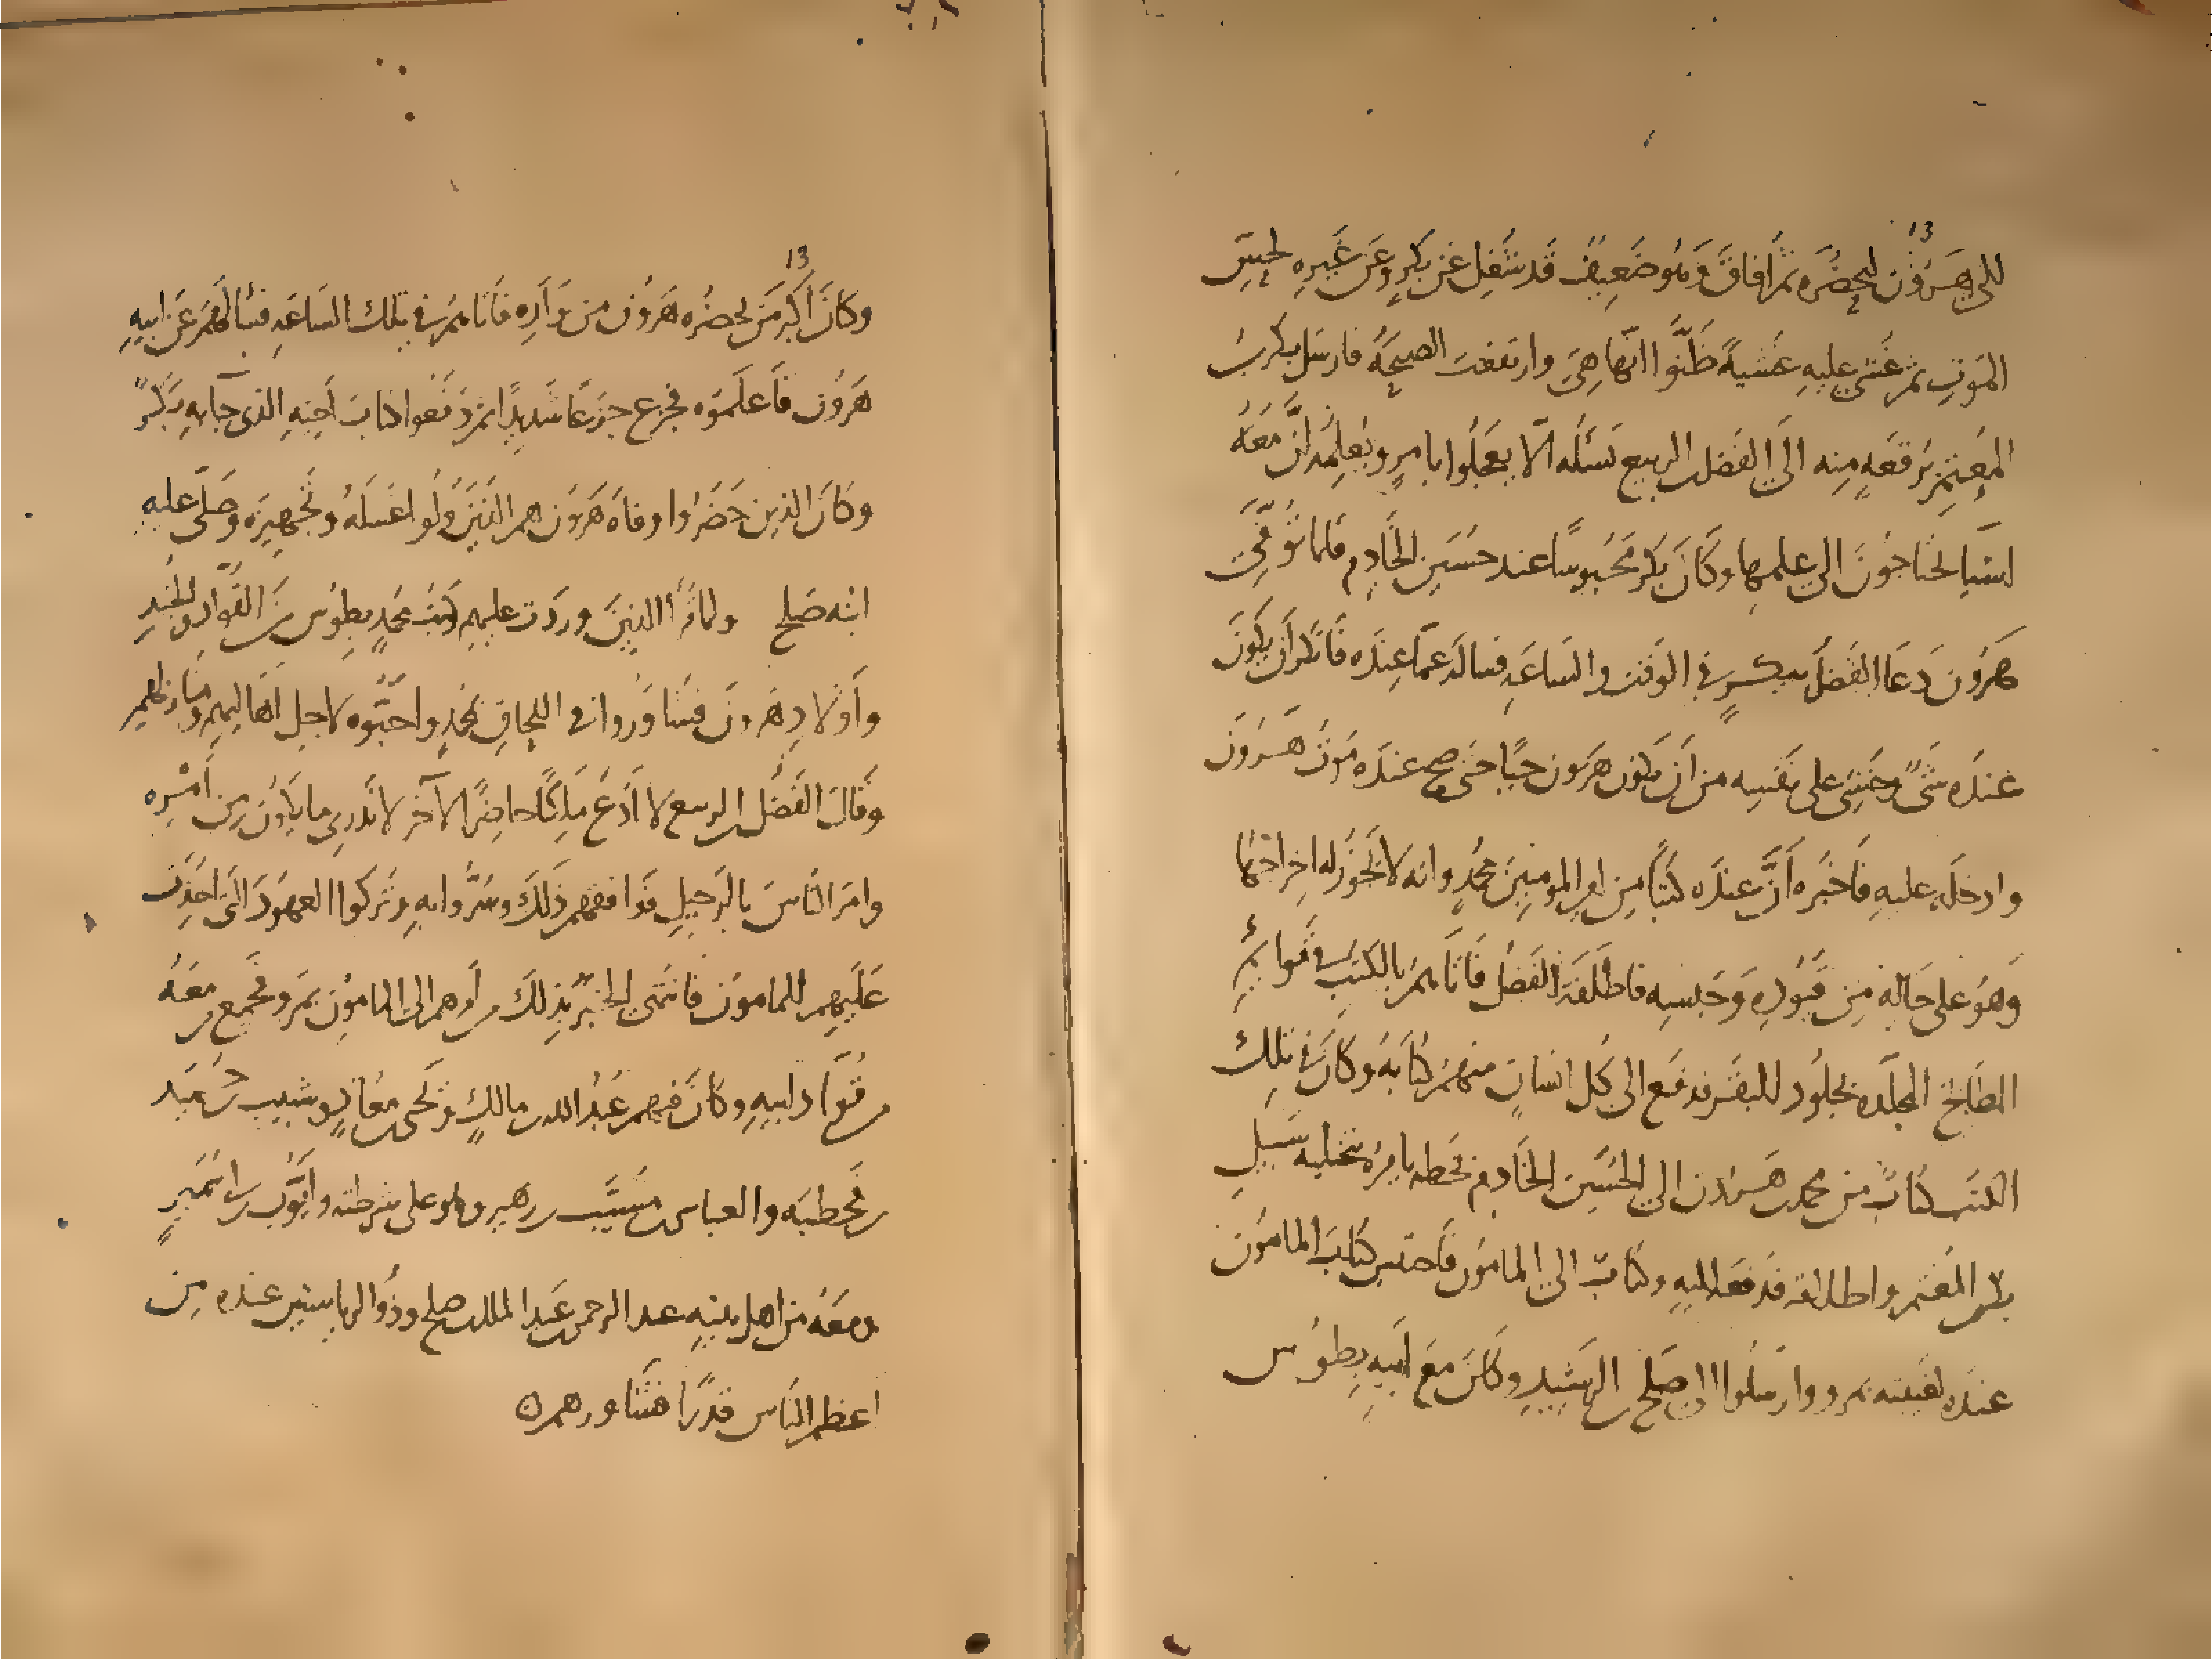 13
الى هرون ليحضره ثم افاق وهو ضعيف قد شغل عن بكر وعن غيره لحس
الموت ثم غشى عليه غشية ظنوا انها هى وارتفعت الصيحة فارسل بكر بن
المعتمر برقعة منه الى الفضل بن الربيع تسئله الا يعجلوا بامر ويعلمه ان معه
اشيا يحتاجون الى علمها وكان بكر محبوسا عند حسين الخادم فلما توفى
هرون دعا الفضل ببكر فى الوقت والساعة فساله عما عنده فانكر ان يكون
عنده شى وخشى على نفسه من ان يكون هرون حيا حتى صح عنده موت هرون
وادخله عليه فاخبره ان عنده كتبا من امير المومنين محمد وانه لا يجوز له اخراجها
وهو على حاله من قيوده وحبسه فاطلقه الفضل فاتاهم بالكتب فى قوائم
المطابخ المجلدة بجلود البقر فدفع الى كل انسان منهم كتابه وكان فى تلك
الكتب كتاب من محمد بن هرون الى الحسين الخادم بخطه يامره بتخليه سبيل
بكر بن المعتمر واطلاقه فدفعه اليه وكتاب الى المامون فاحتبس كتاب المامون
عنده لغيبته بمرو وارسلوا الى صلح بن الرشيد وكان مع ابيه بطوس
13
وكان اكبر من يحضره هرون من ولده فاتاهم فى تلك الساعة فسالهم عن ابيه
هرون فاعلموه فجزع جزعا شديدا ثم دفعوا كتاب اخيه الذى جا به بكر
وكان الذين حضروا وفاة هرون هم الذين ولوا غسله وتجهيزه وصلى عليه
ابنه صلح ولما قرا الذين وردت عليهم كتب محمد بطوس من القواد والجند
واولاد هرون فتشاوروا فى اللحاق بمحمد واحبوه لاجل اهاليهم ومنازلهم
وقال الفضل بن الربيع لا ادع ملكا حاضرا لاخر لا ندرى ما يكون من امره
وامر الناس بالرحيل فوافقهم ذلك وسروا به وتركوا العهود التى اخذت
عليهم للمامون فانتهى الخبر بذلك من امرهم الى المامون بمرو فجمع من معه
من قواد ابيه وكان فيهم عبد الله بن مالك ويحيى بن معاذ وشبيب بن حميد
بن قحطبة والعباس بن مسيب بن زهير وهو على شرطته وايوب بن ابى سمير
ومعه من اهل بيته عبد الرحمن بن عبد الملك بن صلح وذو الرياستين عنده من
اعظم الناس قدرا فشاورهم